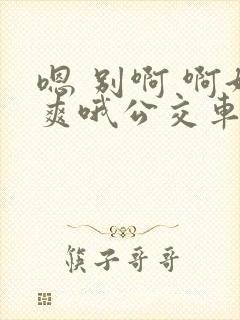 嗯 别啊 啊好
爽哦公交车
筷子哥哥